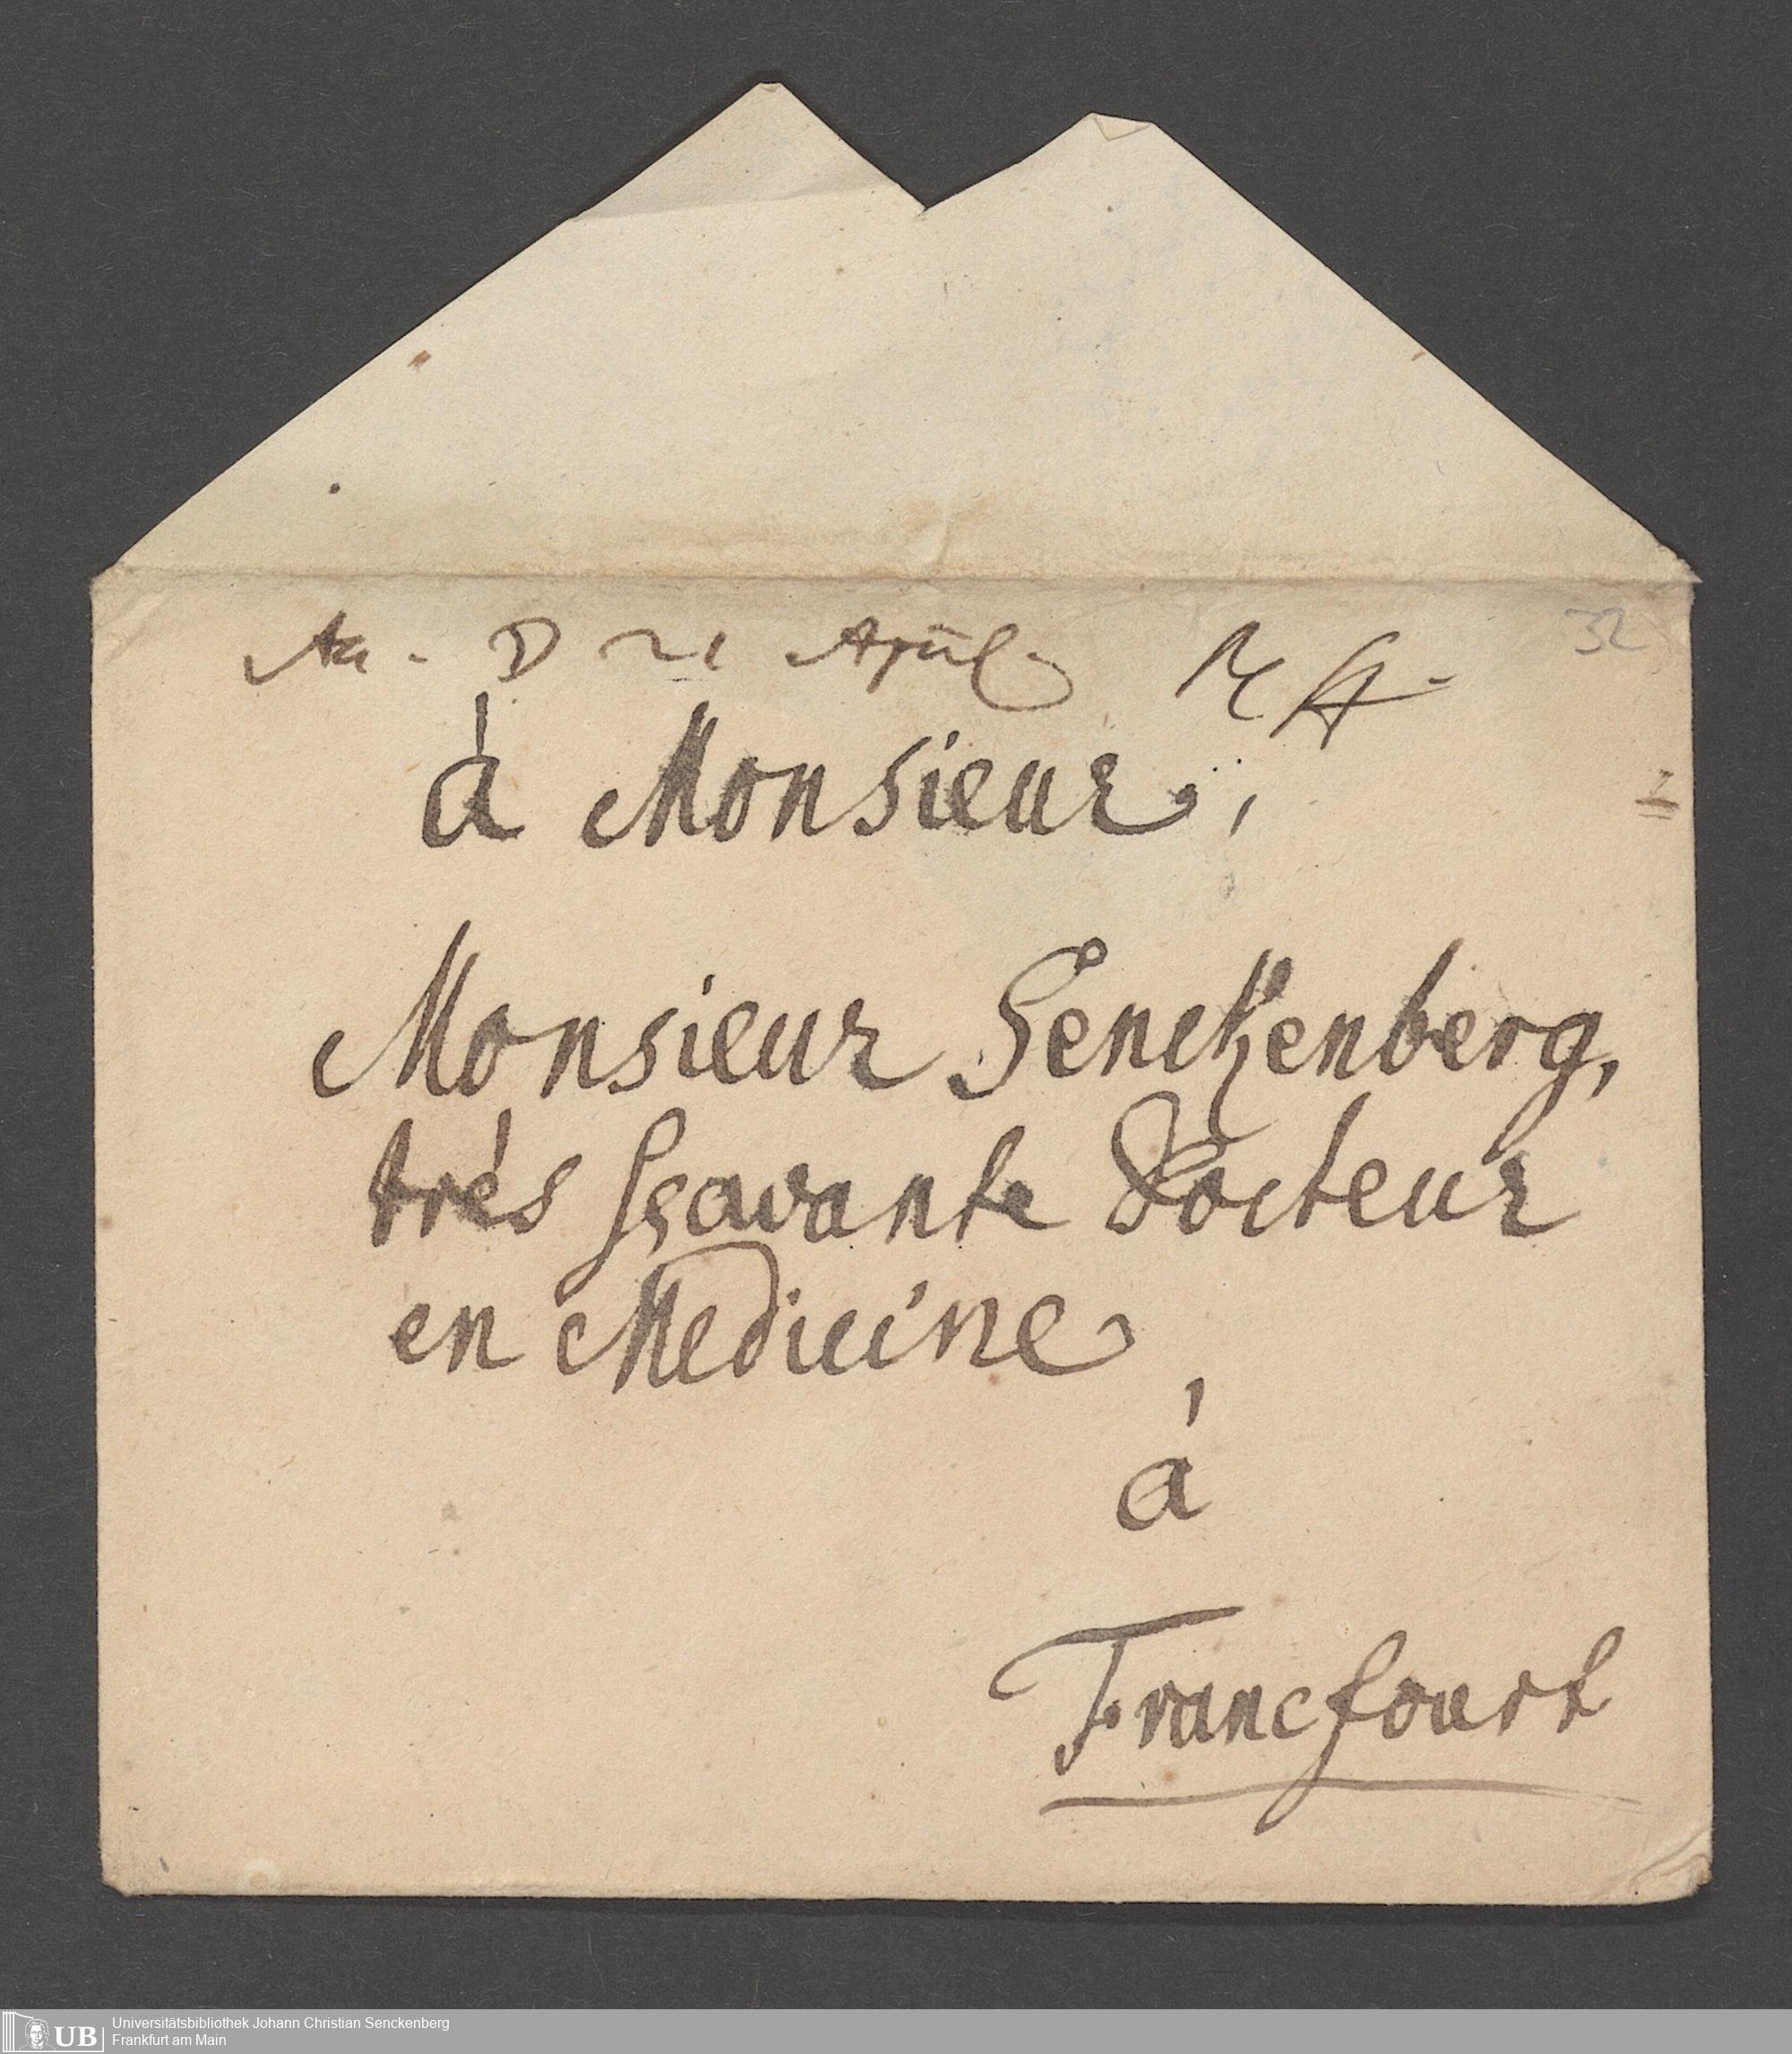 D 21 April
32
à Monsieur,
Monsieur Senckenberg,
trés sçavante Docteur
en Medicine,
á
Francfourt
UB Universitätsbibliothek Johann Christian Senckenberg
Frankfurt am Main